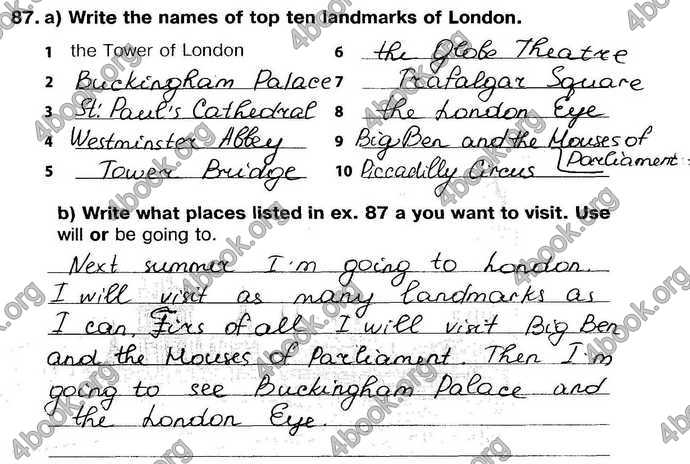 87. a) Write the names of top ten landmarks of London.
1 the Tower of London
2 Buckingham Palace
3 St. Paul's Cathedral
4 Westminster Abbey
5 Tower Bridge
6 the Globe Theatre
7 Trafalgar Square
8 the London Eye
9 Big Ben and the Houses of Parliament
10 Piccadilly Circus
b) Write what places listed in ex. 87 a you want to visit. Use
will or be going to.
Next summer I'm going to London.
I will visit as many landmarks as
I can. Firs of all I will visit Big Ben
and the Houses of Parliament. Then I'm
going to see Buckingham Palace and
the London Eye.
4book.org